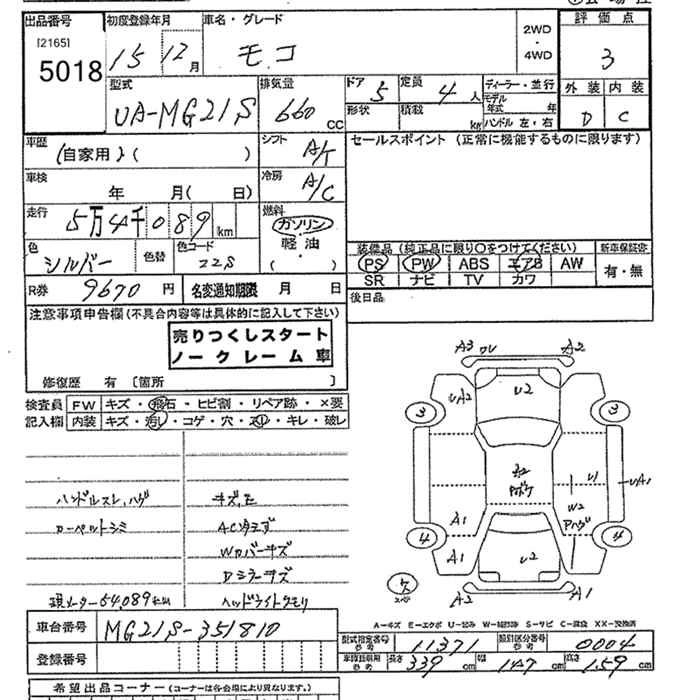 出品番号
[2165]
5018
初度登録年月
15 12 月
車名・グレード
モコ
2WD
・
4WD
評価点
3
外装 内装
D C
型式
UA-MG21S
排気量
660 CC
ドア 5
形状
定員 4 人
積載 kg
ディーラー・並行
モデル年式 年
ハンドル 左・右
車歴
(自家用)( )
シフト A/T
セールスポイント (正常に機能するものに限ります)
車検
年 月( 日)
冷房 A/C
走行
5万4千089 km
燃料
ガソリン
・
軽油
( )
色 シルバー
色替
色コード
ZZS
装備品 (純正品に限り○をつけてください)
新車保証書
PS PW ABS エアB AW
有・無
SR ナビ TV カワ
R券 9670 円
名変通知期限 月 日
後日品
注意事項申告欄 (不具合内容等は具体的に記入して下さい)
売りつくしスタート
ノークレーム車
修復歴 有 〔箇所 〕
検査員
記入欄
FW キズ・飛石・ヒビ割・リペア跡・×要
内装 キズ・汚れ・コゲ・穴・スリ・キレ・破レ
ハンドルスレ、ハゲ
カーペットシミ
現メーター54,089km
Wカバーキズ
Dミラーキズ
ヘッドライトクモリ
A3 ワレ A2
UA2 U2
3 3
U1 UA1
W2
Aハゲ
A1
4 4
A1 U2
A2 A1
A-キズ E-エクボ U-凹み W-補修跡 S-サビ C-腐食 XX-交換済
車台番号 MG21S-351810
登録番号
型式指定番号 参考 11371
類別区分番号 参考 0004
車検証明細 参考
長さ 339 cm
幅 147 cm
高さ 159 cm
希望出品コーナー (コーナーは各会場により異なります。)